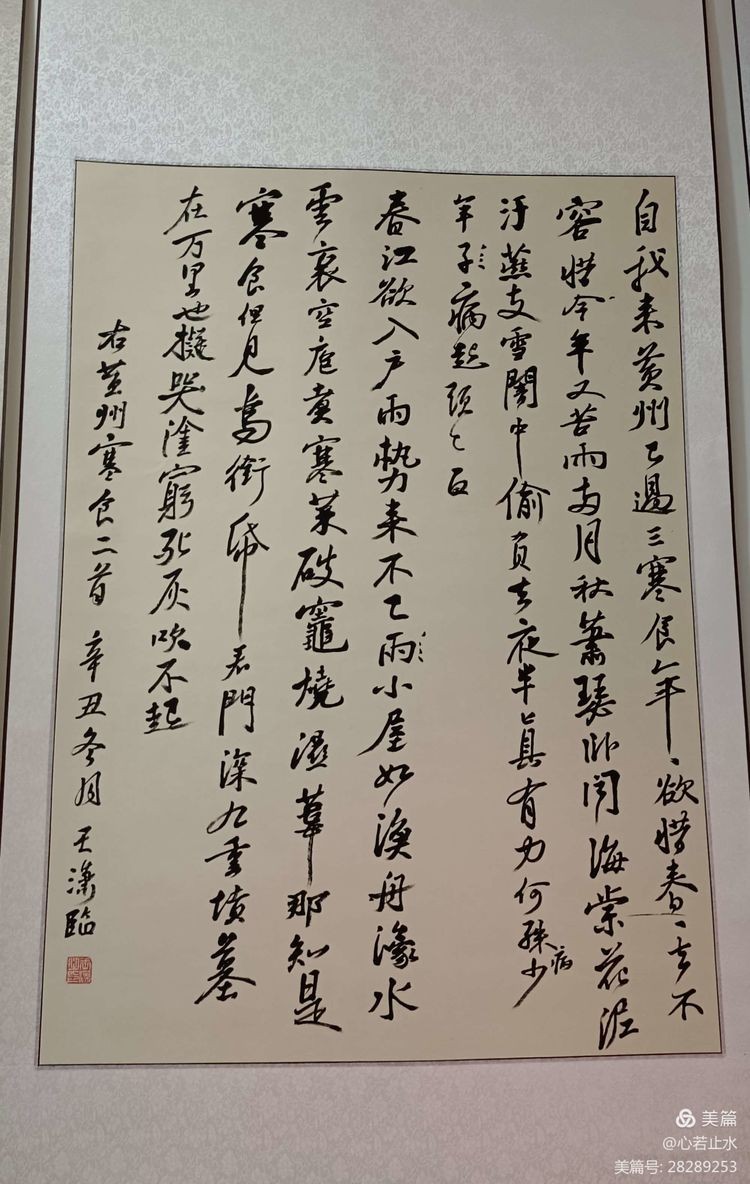 自我来黄州已過三寒食年、欲惜春、去不
容惜今年又苦雨两月秋蕭瑟卧闻海棠花泥
汙燕支雪闇中偷負去夜半真有力何殊病少
年子病起頭已白
春江欲入户雨勢来不已雨小屋如漁舟濛水
雲裏空庖煮寒菜破竈燒濕葦那知是
寒食但見烏銜帋君門深九重墳墓
在万里也擬哭塗窮死灰吹不起
右黄州寒食二首 辛丑冬月 王潇臨
美篇
@心若止水
美篇号: 28289253